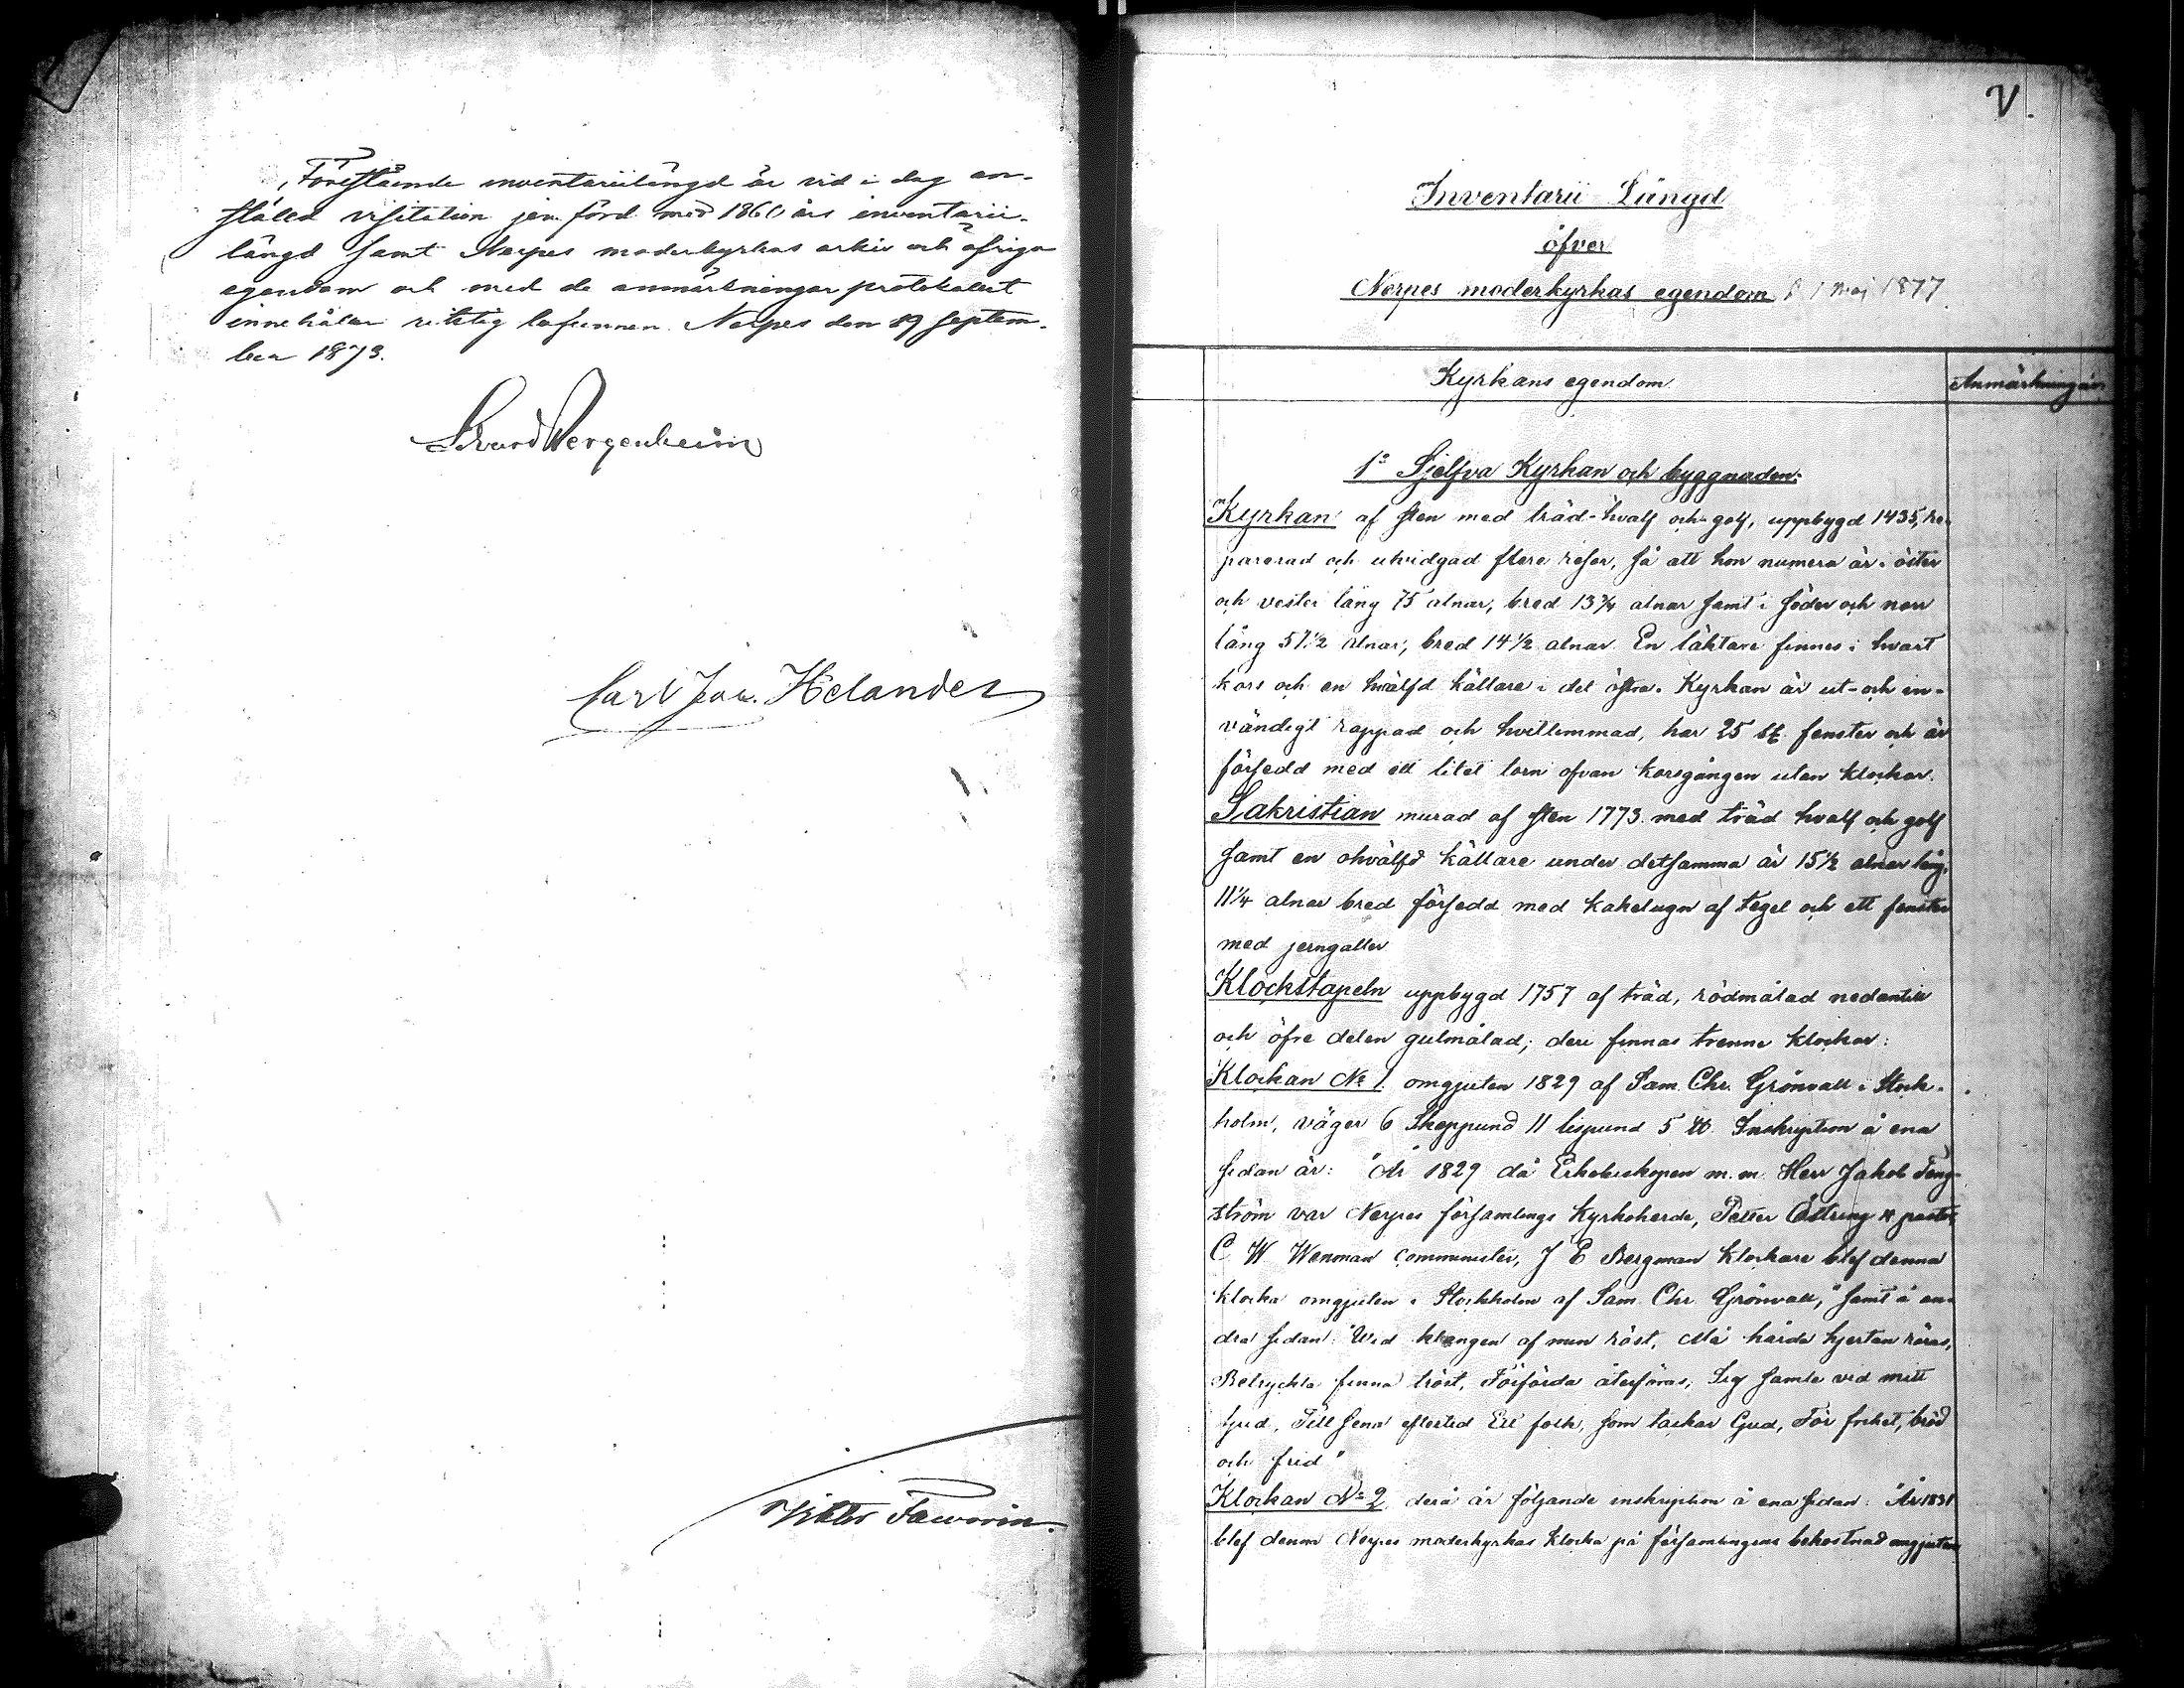 Förestående inventariilängd är vid i dag an-
ställd visitation jemförd med 1860 års inventarii-
längd samt Nerpes moderkyrkas arkiv och öfriga
egendom och med de anmärkningar protokollet
innehåller riktig befunnen. Nerpes den 19 Septem-
ber 1873.
Edvard Bergenheim
Carl Jac. Helander
Viktor Faworin.
V.
Inventarii Längd
öfver
Nerpes moderkyrkas egendom d 1 Maj 1877
Kyrkans egendom
Anmärkningar
1o Sjelfva Kyrkan och byggnaden:
Kyrkan af sten med träd-hvalf och golf, uppbygd 1435, re-
parerad och utvidgad flere resor, så att hon numera är i öster
och vester lång 75 alnar, bred 13¾ alnar samt i söder och norr
lång 57½ alnar, bred 14½ alnar. En läktare finnes i hvart
kors och en hvälfd källare i det östra. Kyrkan är ut- och in-
vändigt rappad och hvitlimmad, har 25 st. fenster och är
försedd med ett litet torn ofvan korsgången utan klockor.
Sakristian murad af sten 1773 med träd hvalf och golf
samt en ohvälfd källare under detsamma är 15½ alnar lång,
11¼ alnar bred försedd med kakelugn af tegel och ett fenster
med jerngaller
Klockstapeln uppbygd 1757 af träd, rödmålad nedantill
och öfre delen gulmålad; deri finnas trenne klockor:
Klockan No 1 omgjuten 1829 af Sam. Chr. Grönvall i Stock-
holm, väger 6 Skeppund 11 lispund 5 ℔. Inskription å ena
sidan är: "År 1829 då Erkebiskopen m. m. Herr Jakob Teng-
ström var Nerpes församlings Kyrkoherde, Petter Östring v pastor,
C W Wenman Comminister, J E Bergman klockare blef denna
klocka omgjuten i Stockholm af Sam. Chr Grönvall," samt å an-
dra sidan: "Wid klangen af min röst, Må hårda hjertan röras,
Betryckta finna tröst, Förförda återföras, Sig samle vid mitt
ljud, Till sena eftertid Ett folk, som tackar Gud, För frihet, bröd
och frid"
Klockan No 2 derå är följande inskription å ena sidan: "År 1831
blef denna Nerpes moderkyrkas klocka på församlingens bekostnad omgjuten